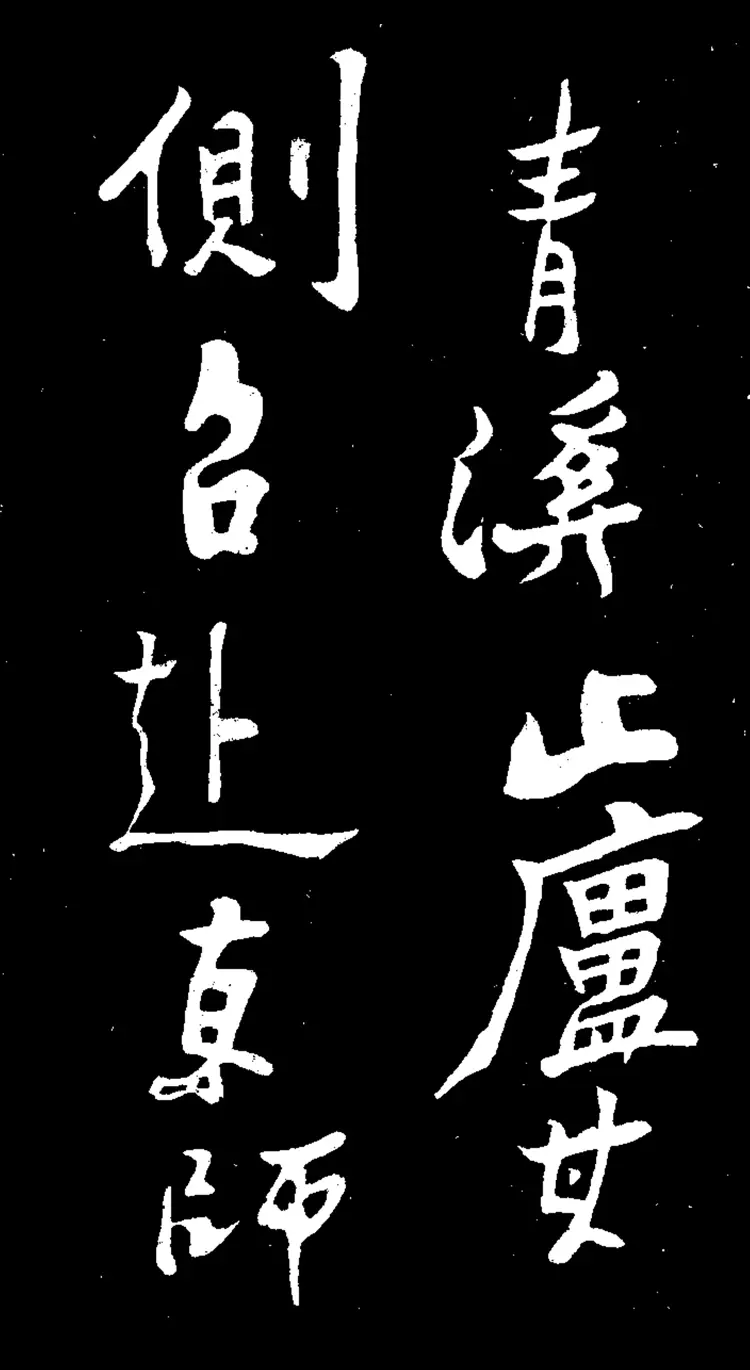 青溪止廬其
側召赴京師